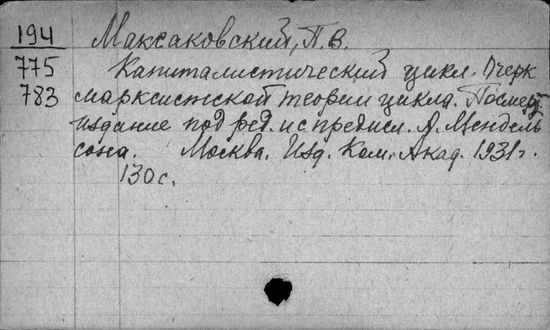 194 Максаковский, П. В.
775 Капиталистический цикл. Очерк
783 марксистской теории цикла. Посмерт.
издание под ред. и с предисл. А. Мендель
сона. Москва. Изд. Ком. Акад. 1931 г.
130 с.